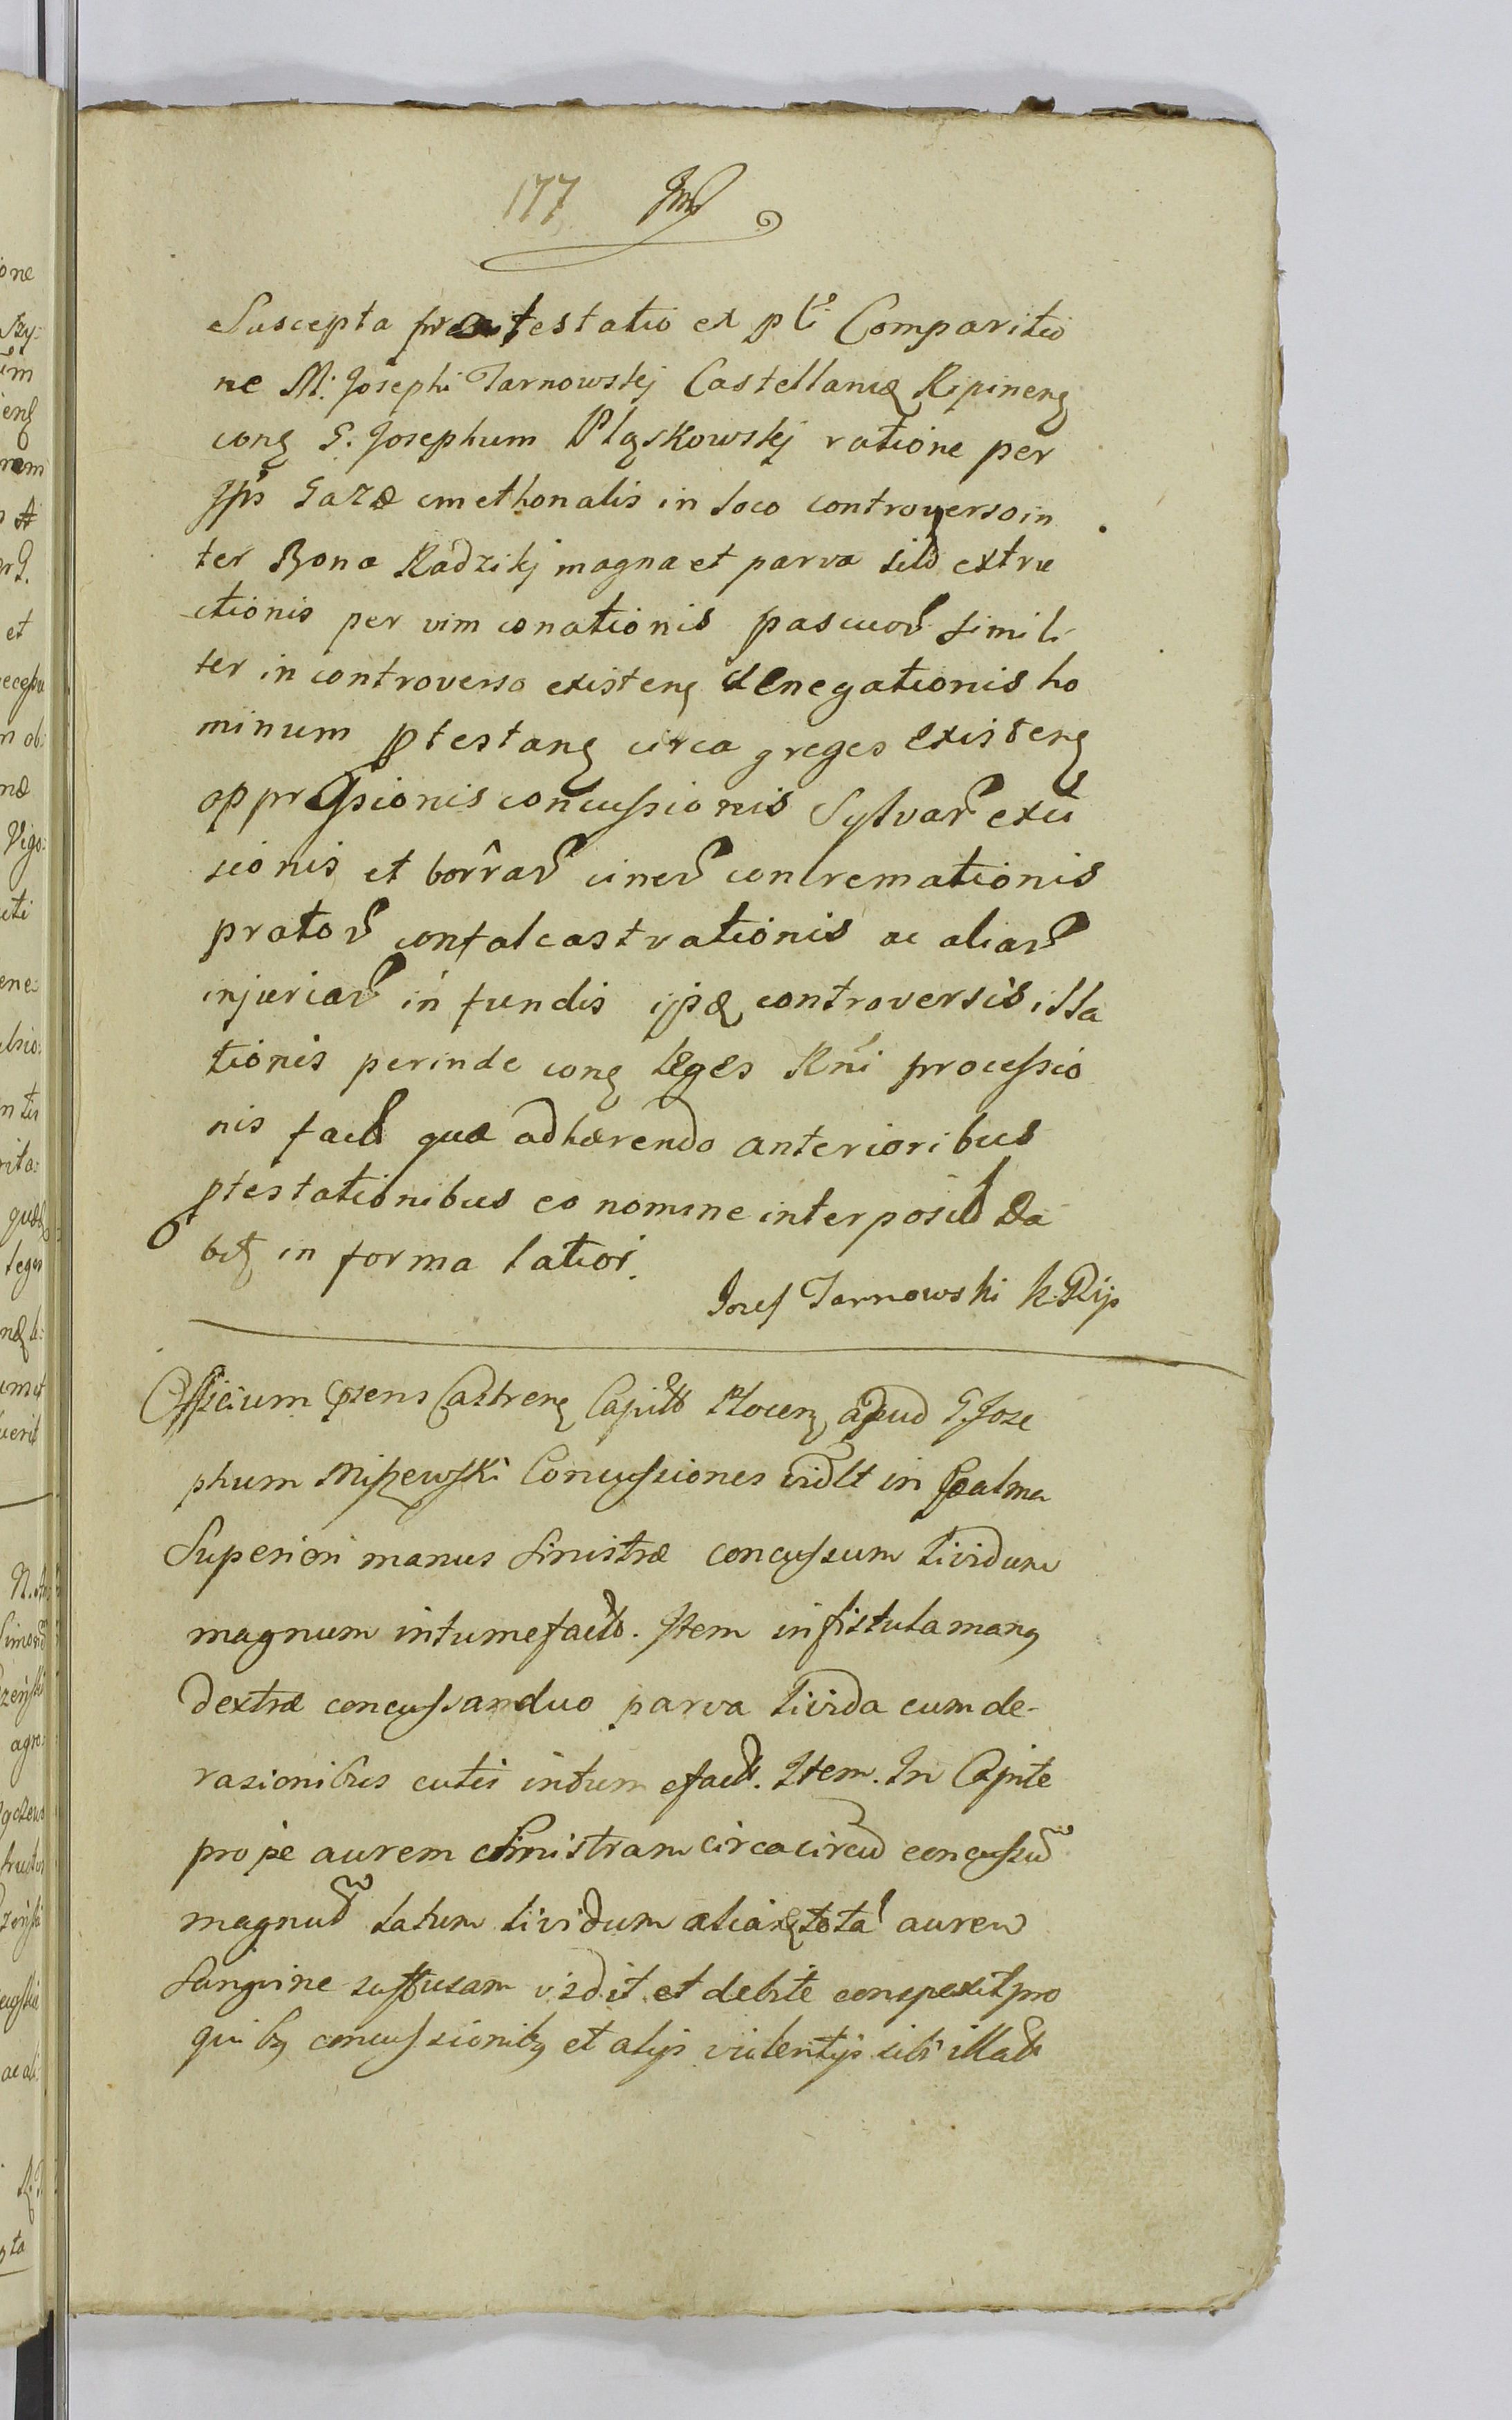 177
Suscepta protestatio ex płi Comparitio
ne M: Josephi Tarnowskj Castellanię Ripineñ
conȝ G. Josephum Pląskowskj ratione per
Ipś Gazæ cmethonalis in loco controverso in
ter Bona Radzikj magna et parva sitæ extru
ctionis per vim conationis pascuoȓ simili
ter in controverso existenȝ denegationis ho
minum ptestanȝ circa greges existenȝ
oppressionis concussionis Sylvaȓ exci
sionis et borraȓ cineȓ concremationis
pratoȓ confalcastrationis ac aliaȓ
injuriaȓ in fundis ijsdē controversis illa
tionis perinde conȝ leges Rńi processio
nis factæ quæ adhærendo anterioribus
ptestationibus eo nomine interposit da
bitȝ in forma latiori.
Josef Tarnowski K. Rip
Officium psens Castrenȝ Capitł Plocenȝ apud G. Jose
phum Miszewski Concussiones vidłt in palma
Superiori manus sinistræ concussum lividum
magnum intumefactȝ. Item in fistula manȝ
dextræ concussa duo parva livida cum de-
rasionibus cutis intumefactȝ. Item. In Capite
prope aurem sinistram circa circū concussū
magnū latum lividum totā aurem
sangvine suffusam vidit et debite conspexit pro
quibȝ concussionibȝ et alijs violentijs sibi illatȝ